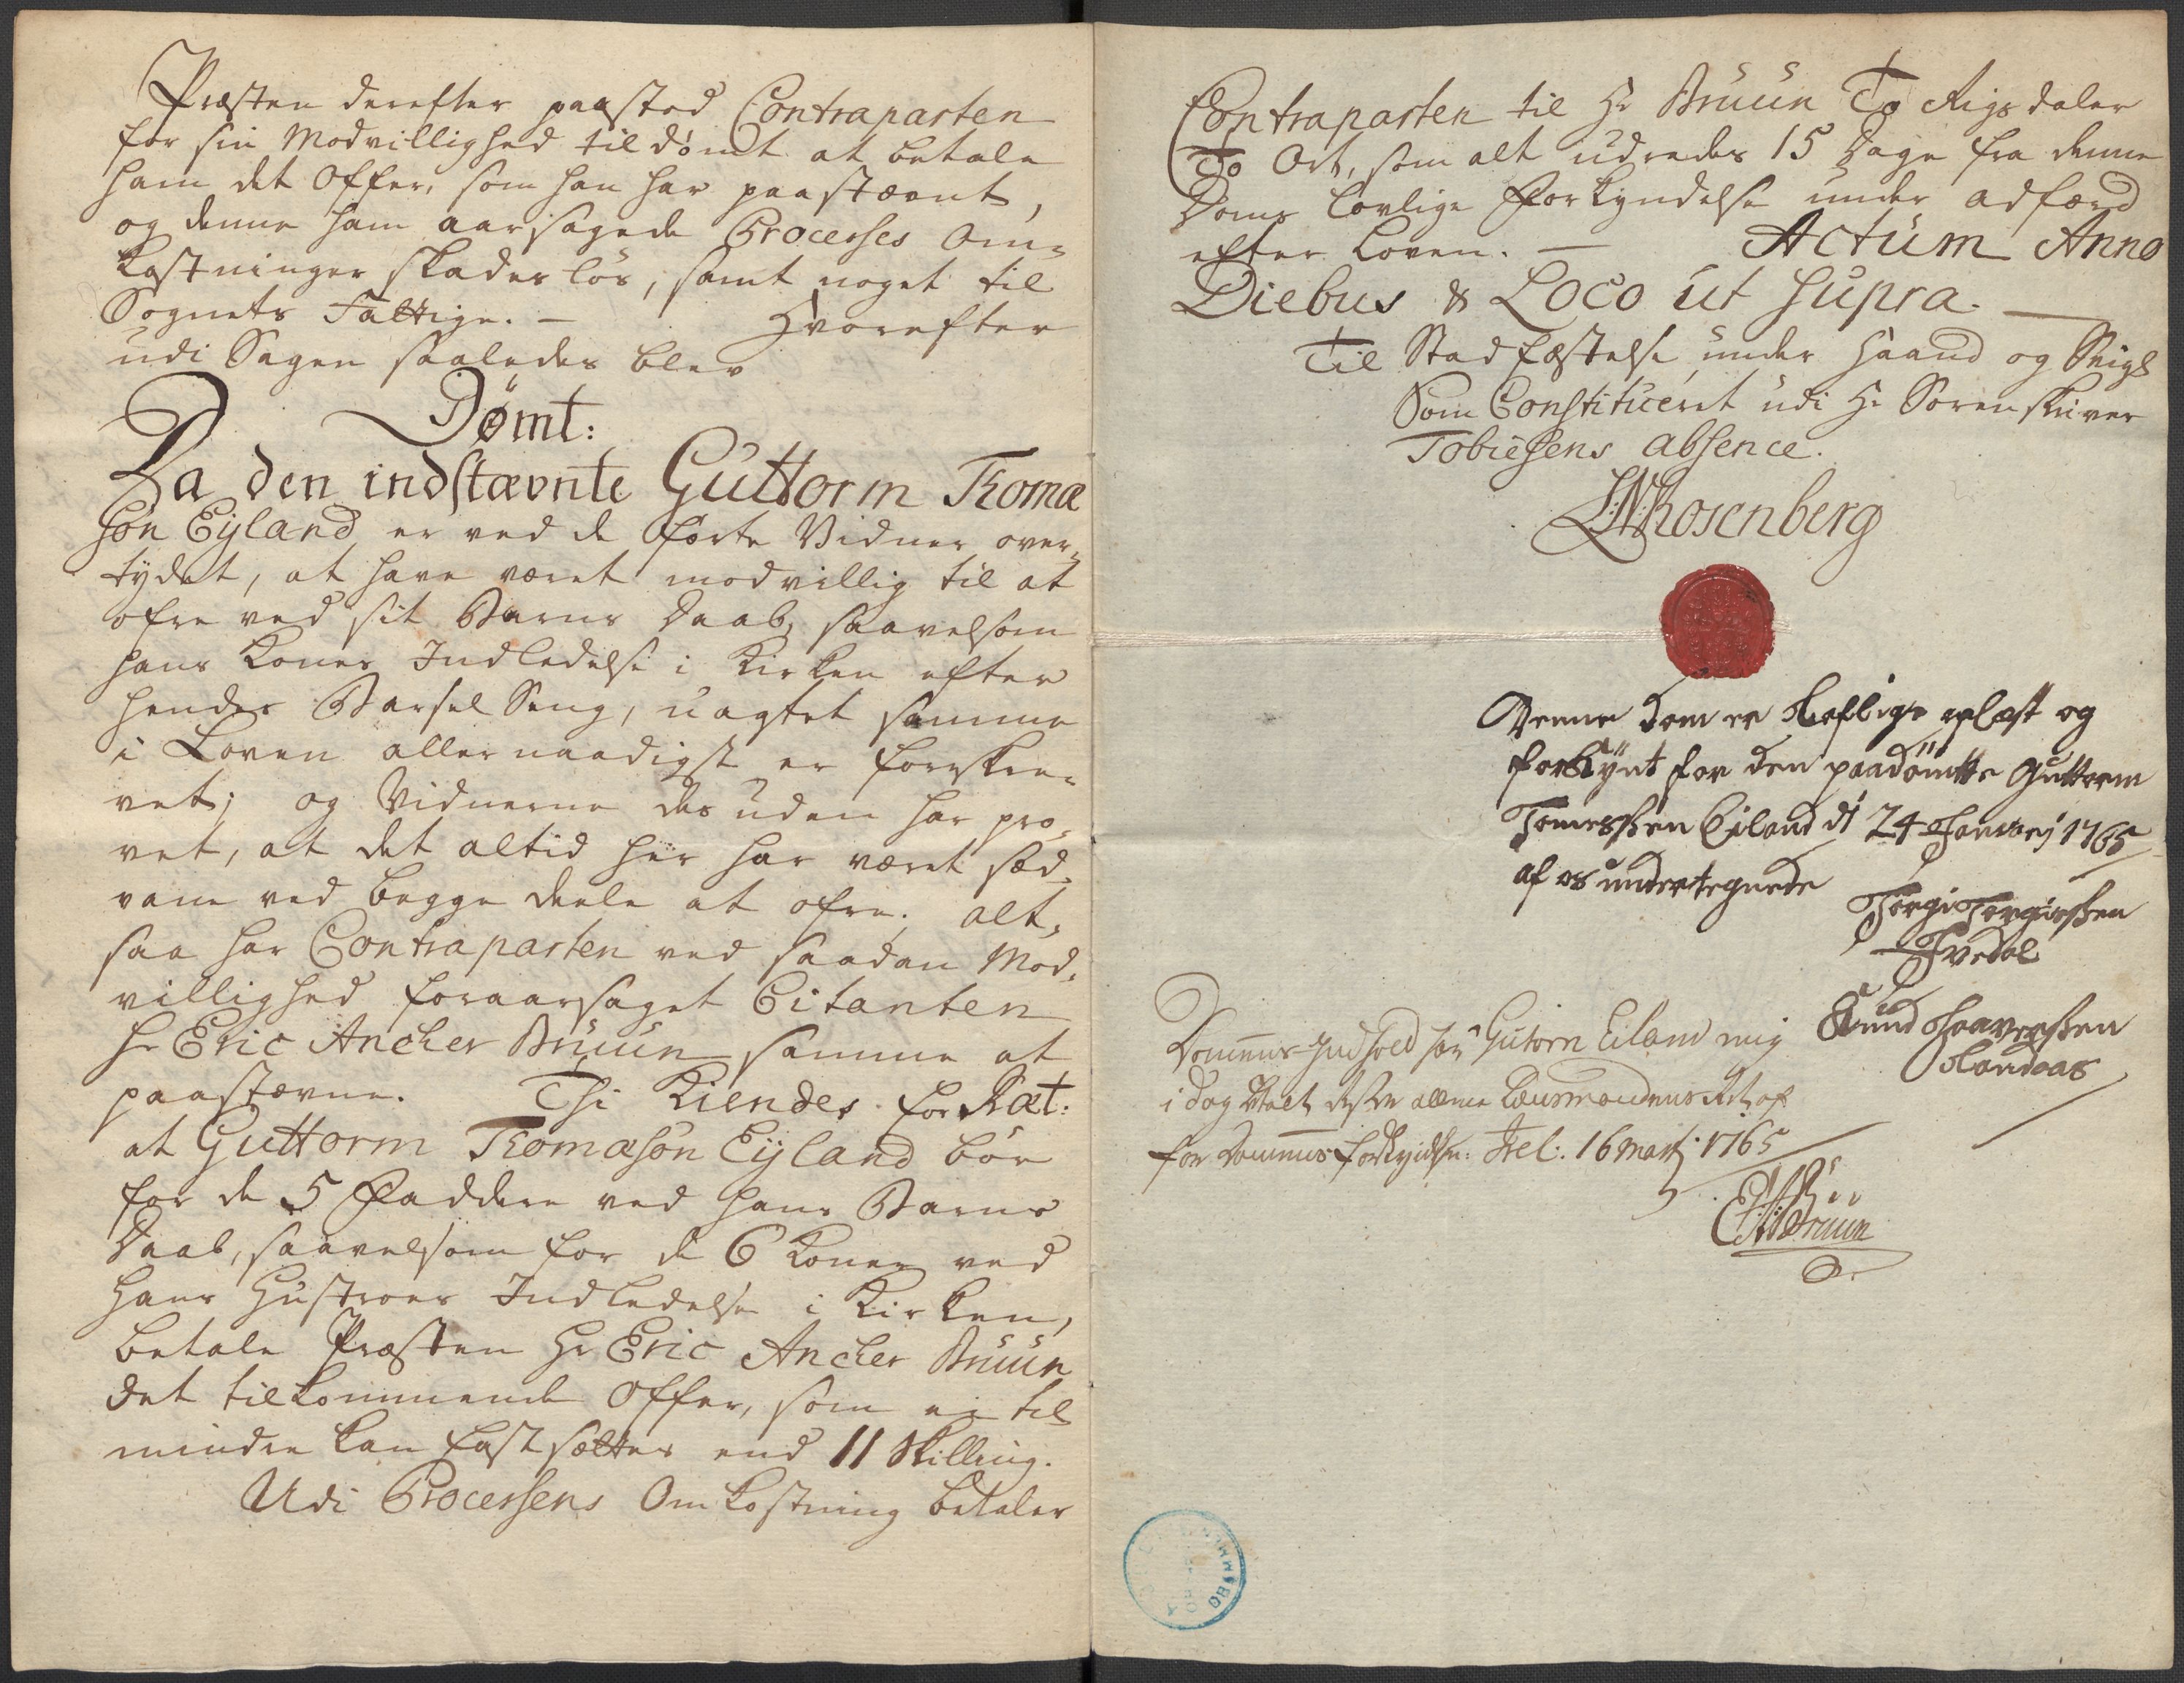 Præsten derefter paastod Contraparten
for sin Modvillighed tildømt at betale
ham det Offer, som han har paastævnt,
og denne ham aarsagede Processes Om=
kostninger skadesløs, samt noget til
Sognets Fattige. — Hvorefter
udi Sagen saaledes blev
Dømt:
Da den indstævnte Guttorm Thomæ
søn Eyland er ved de førte Vidner over=
tydet, at have været modvillig til at
ofre ved sit Barns Daab, saavelsom
hans Kones Indledelse i Kirken efter
hendes Barsel Seng, uagtet samme
i Loven allernaadigst er foreskre=
vet; og Vidnerne des uden har pro=
vet, at det altid her har været sæd=
vane ved begge deele at ofre; alt=
saa har Contraparten ved saadan Mod=
villighed foraarsaget Citanten
Hr Eric Ancher Bruun samme at
paastævne. Thi Kiendes for Ræt:
at Guttorm Thomæsøn Eyland bør
for de 5 Faddere ved hans Barns
Daab, saavelsom for de 6 Koner ved
hans Hustroes Indledelse i Kirken,
betale Præsten Hr Eric Ancher Bruun
det tilkommende Offer, som ei til
mindre kan fastsættes end 11 Skilling.
Udi Processens Omkostning betaler
Contraparten til Hr Bruun To Rigsdaler
To Ort, som alt udredes 15 Dage fra denne
Doms lovlige Forkyndelse under adfærd
efter Loven. — Actum Anno
Diebus & Loco ut supra. —
Til Stadfæstelse under Haand og Seigl
Som Constitueret udi Hr Sorenskriver
Tobiesens absence.
L:N:Rosenberg
Denne Dom er Lofligt oplæst og
forkÿnt for den paadømtte Guttorm
Tomessen Eiland d 24 Janvarj 1765
af os undertegnede
Torgi Torgiessen
Tvedal
Knud Haavorssen
Landaas
Dommens Indhold har Gutorm Eiland mig
i Dag betalt allene Lænsmandens
for Dommens forkyndelse. 16 Marti 1765
EABruun